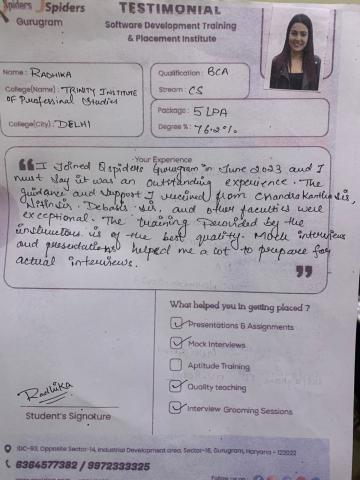 Spiders JSpiders
Gurugram
TESTIMONIAL
Software Development Training
& Placement Institute
Name: RADHIKA
College(Name): TRINITY INSTITUTE
OF Professional Studies
College(City): DELHI
Qualification: BCA
Stream: CS
Package: 5 LPA
Degree %: 76.2%
Your Experience
I Joined Qspiders Gurugram in June 2023 and I
must say it was an outstanding experience. The
guidance and support I received from Chandrakantha sir,
Nitin sir, Debasis sir, and other faculties were
exceptional. The training Provided by the
instructors is of the best quality. Mock interviews
and presentations helped me a lot to prepare for
actual interviews.
What helped you in getting placed ?
Presentations & Assignments
Mock Interviews
Aptitude Training
Quality teaching
Interview Grooming Sessions
Radhika
Student's Signature
IDC-93, Opposite Sector-14, Industrial Development area, Sector-16, Gurugram, Haryana - 122022
6364577382 / 9972333325